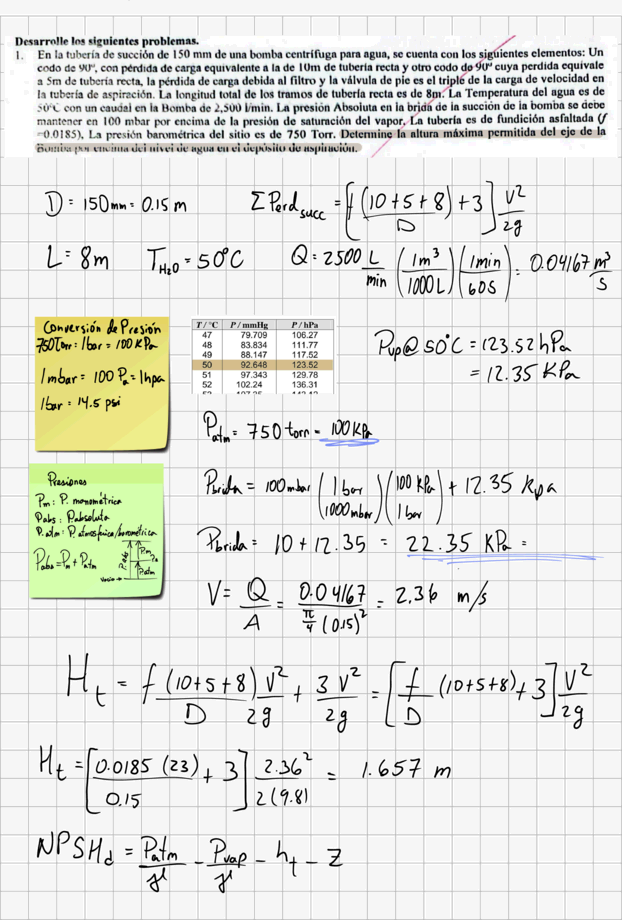 Desarrolle los siguientes problemas.
1. En la tubería de succión de 150 mm de una bomba centrífuga para agua, se cuenta con los siguientes elementos: Un
codo de 90º, con pérdida de carga equivalente a la de 10m de tubería recta y otro codo de 90º cuya perdida equivale
a 5m de tubería recta, la pérdida de carga debida al filtro y la válvula de pie es el triple de la carga de velocidad en
la tubería de aspiración. La longitud total de los tramos de tubería recta es de 8m. La Temperatura del agua es de
50°C con un caudal en la Bomba de 2,500 l/min. La presión Absoluta en la brida de la succión de la bomba se debe
mantener en 100 mbar por encima de la presión de saturación del vapor, La tubería es de fundición asfaltada (f
=0.0185), La presión barométrica del sitio es de 750 Torr. Determine la altura máxima permitida del eje de la
Bomba por encima del nivel de agua en el depósito de aspiración.
D = 150mm = 0.15 m
Σ Perd succ = [f (10+5+8)/D + 3] V²/2g
L = 8m
T H2O = 50°C
Q = 2500 L/min (1m³/1000L) (1min/60s) = 0.04167 m³/s
Conversión de Presión
750Torr = 1bar = 100KPa
1mbar = 100 Pa = 1hpa
1bar = 14.5 psi
T/°C P/mmHg P/hPa
47 79.709 106.27
48 83.834 111.77
49 88.147 117.52
50 92.648 123.52
51 97.343 129.78
52 102.24 136.31
Pvp@50°C = 123.52 hPa
= 12.35 KPa
Patm = 750 torn = 100KPa
Presiones
Pm: P. manométrica
Pabs: P.absoluta
P.atm: P.atmosférica/barométrica
Pabs = Pm + Patm
P.abs
P.m
Patm
vacío
Pbrida = 100mbar (1bar/1000mbar) (100 KPa/1bar) + 12.35 kpa
Pbrida = 10 + 12.35 = 22.35 KPa =
V = Q/A = 0.04167/(π/4 (0.15)²) = 2.36 m/s
Ht = f (10+5+8)/D V²/2g + 3V²/2g = [f/D (10+5+8) + 3] V²/2g
Ht = [0.0185 (23)/0.15 + 3] 2.36²/2(9.81) = 1.657 m
NPSHd = Patm/γ - Pvap/γ - ht - Z